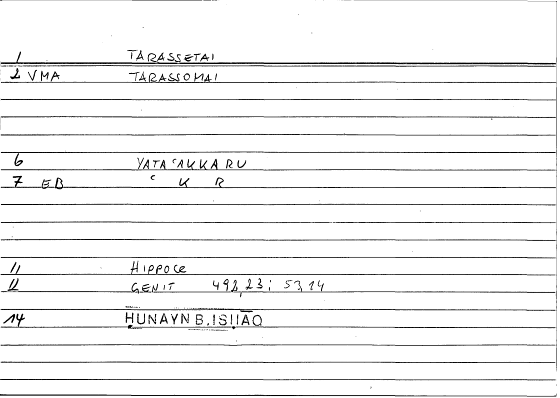 1 TARASSETAI
2 VMA TARASSOMAI
6 YATAʿAKKARU
7 EB ʿ K R
11 HIPPOCE
12 GENIT 492,23; 53,14
14 HUNAYN B.ISḤĀQ